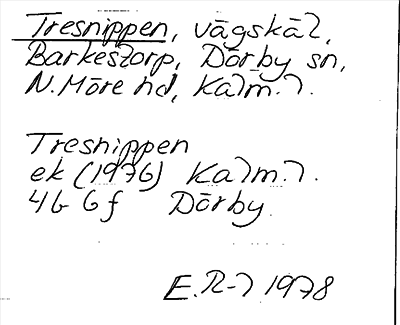 Tresnippen, vägskäl,
Barkestorp, Dörby sn,
N. Möre hd, Kalm. l.
Tresnippen
ek (1976) Kalm. l.
4G 6f Dörby
E. R-l 1978